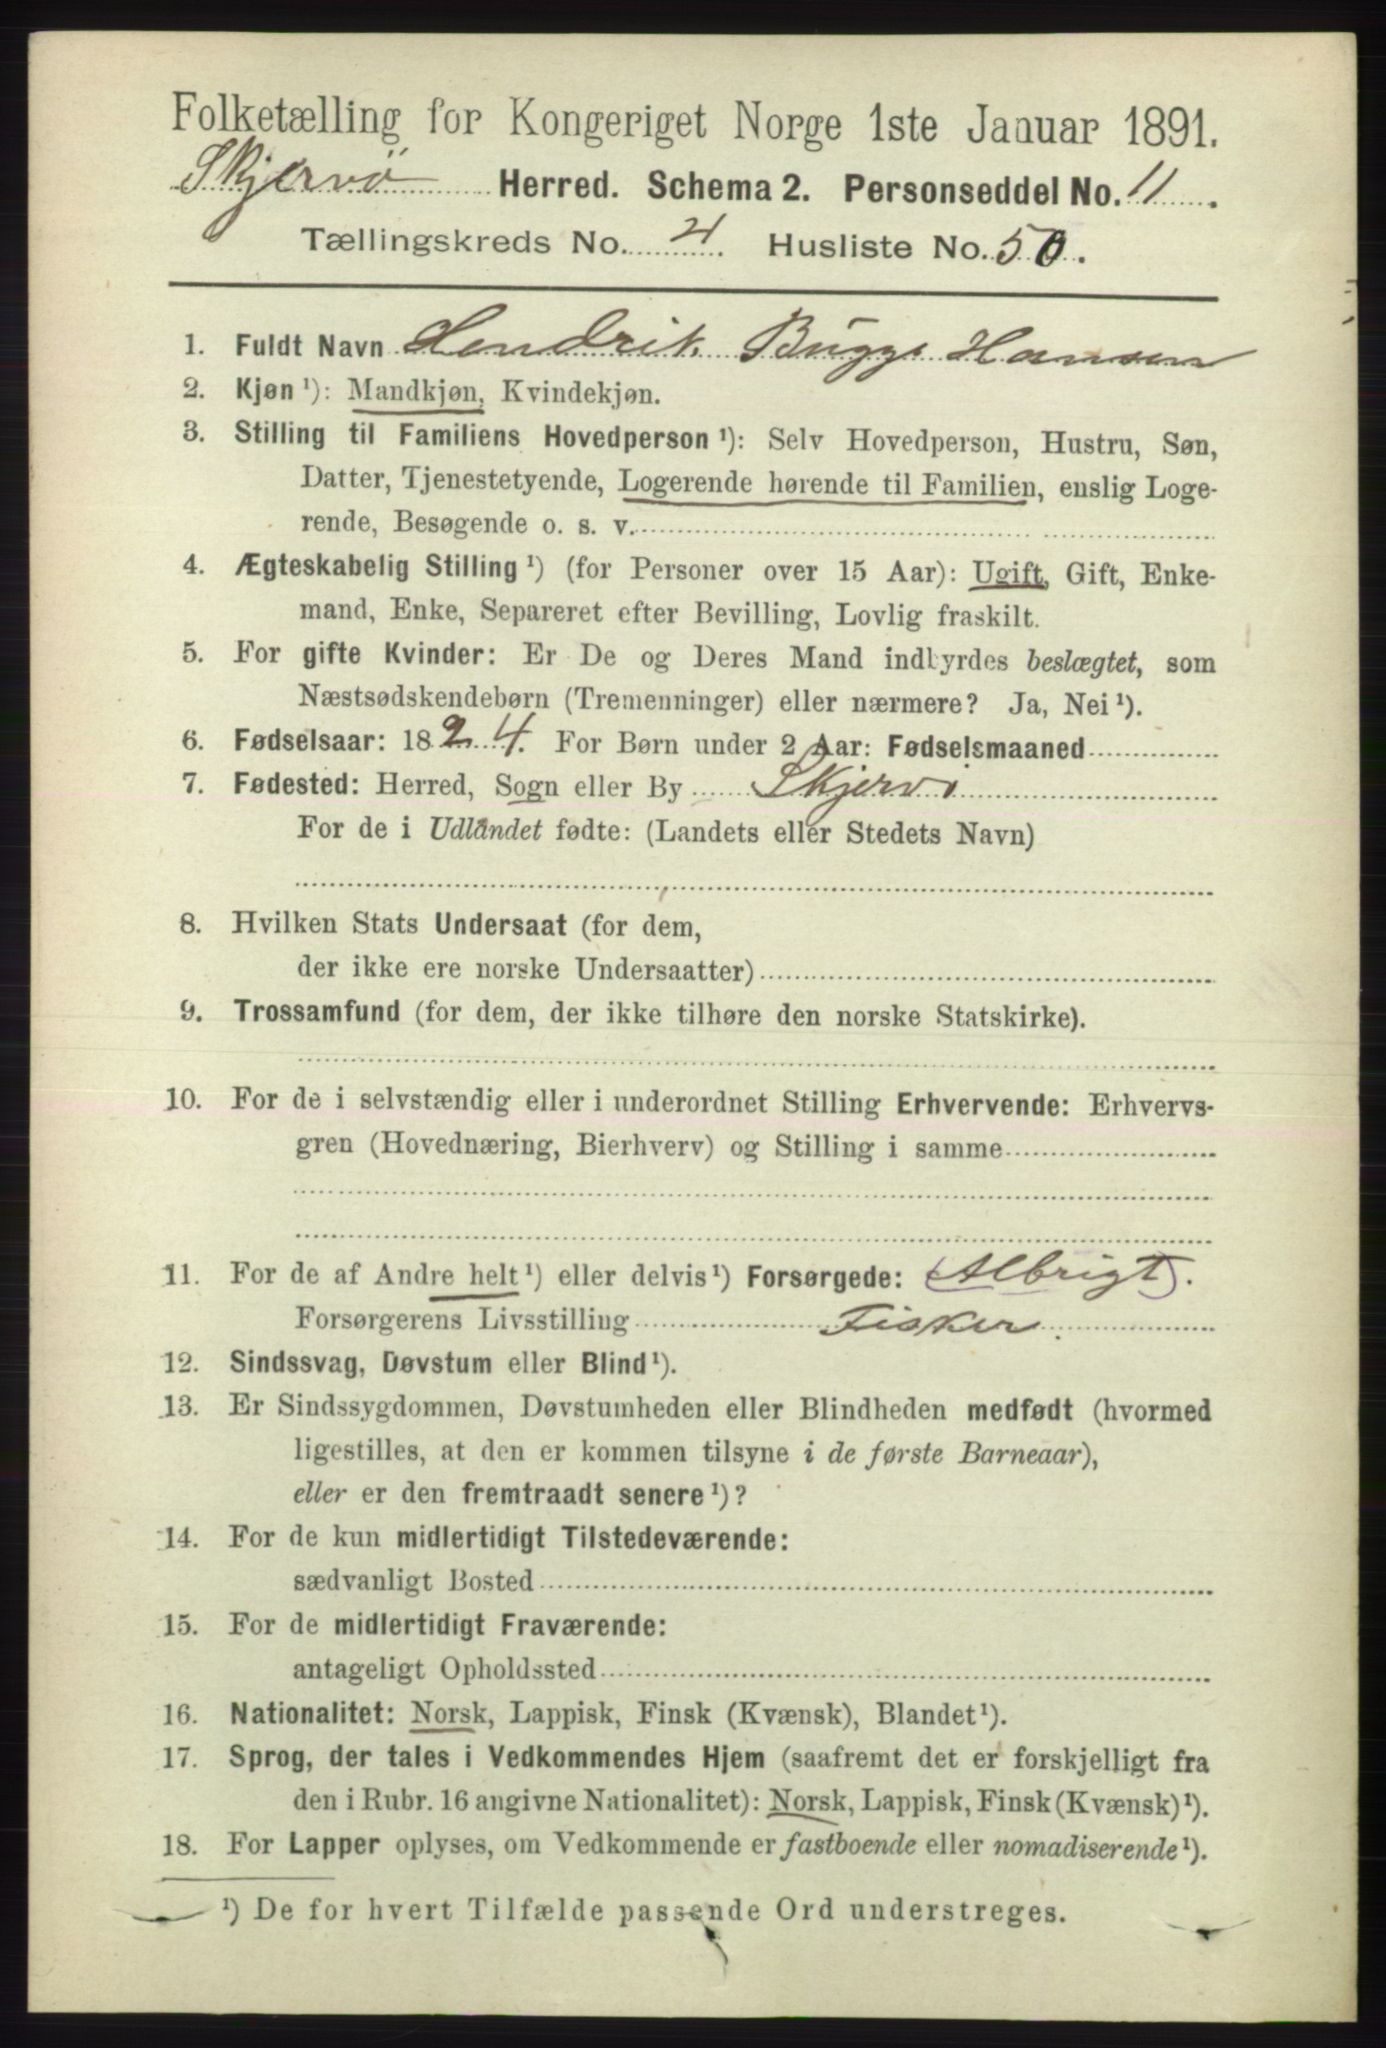 Folketælling for Kongeriget Norge 1ste Januar 1891.
Skjervö Herred. Schema 2. Personseddel No. 11.
Tællingskreds No. 4. Husliste No. 50.
1. Fuldt Navn Hendrik Bugge Hansen
2. Kjøn ¹): Mandkjøn, Kvindekjøn.
3. Stilling til Familiens Hovedperson ¹): Selv Hovedperson, Hustru, Søn,
Datter, Tjenestetyende, Logerende hørende til Familien, enslig Loge-
rende, Besøgende o. s. v.
4. Ægteskabelig Stilling ¹) (for Personer over 15 Aar): Ugift, Gift, Enke-
mand, Enke, Separeret efter Bevilling, Lovlig fraskilt.
5. For gifte Kvinder: Er De og Deres Mand indbyrdes beslægtet, som
Næstsødskendebørn (Tremenninger) eller nærmere? Ja, Nei ¹).
6. Fødselsaar: 1824. For Børn under 2 Aar: Fødselsmaaned
7. Fødested: Herred, Sogn eller By Skjervö
For de i Udlandet fødte: (Landets eller Stedets Navn)
8. Hvilken Stats Undersaat (for dem,
der ikke ere norske Undersaatter)
9. Trossamfund (for dem, der ikke tilhøre den norske Statskirke).
10. For de i selvstændig eller i underordnet Stilling Erhvervende: Erhvervs-
gren (Hovednæring, Bierhverv) og Stilling i samme
11. For de af Andre helt ¹) eller delvis ¹) Forsørgede: (Albrigt).
Forsørgerens Livsstilling Fisker
12. Sindssvag, Døvstum eller Blind ¹).
13. Er Sindssygdommen, Døvstumheden eller Blindheden medfødt (hvormed
ligestilles, at den er kommen tilsyne i de første Barneaar),
eller er den fremtraadt senere ¹)?
14. For de kun midlertidigt Tilstedeværende:
sædvanligt Bosted
15. For de midlertidigt Fraværende:
antageligt Opholdssted
16. Nationalitet: Norsk, Lappisk, Finsk (Kvænsk), Blandet ¹).
17. Sprog, der tales i Vedkommendes Hjem (saafremt det er forskjelligt fra
den i Rubr. 16 angivne Nationalitet): Norsk, Lappisk, Finsk (Kvænsk) ¹).
18. For Lapper oplyses, om Vedkommende er fastboende eller nomadiserende ¹).
¹) De for hvert Tilfælde passende Ord understreges.